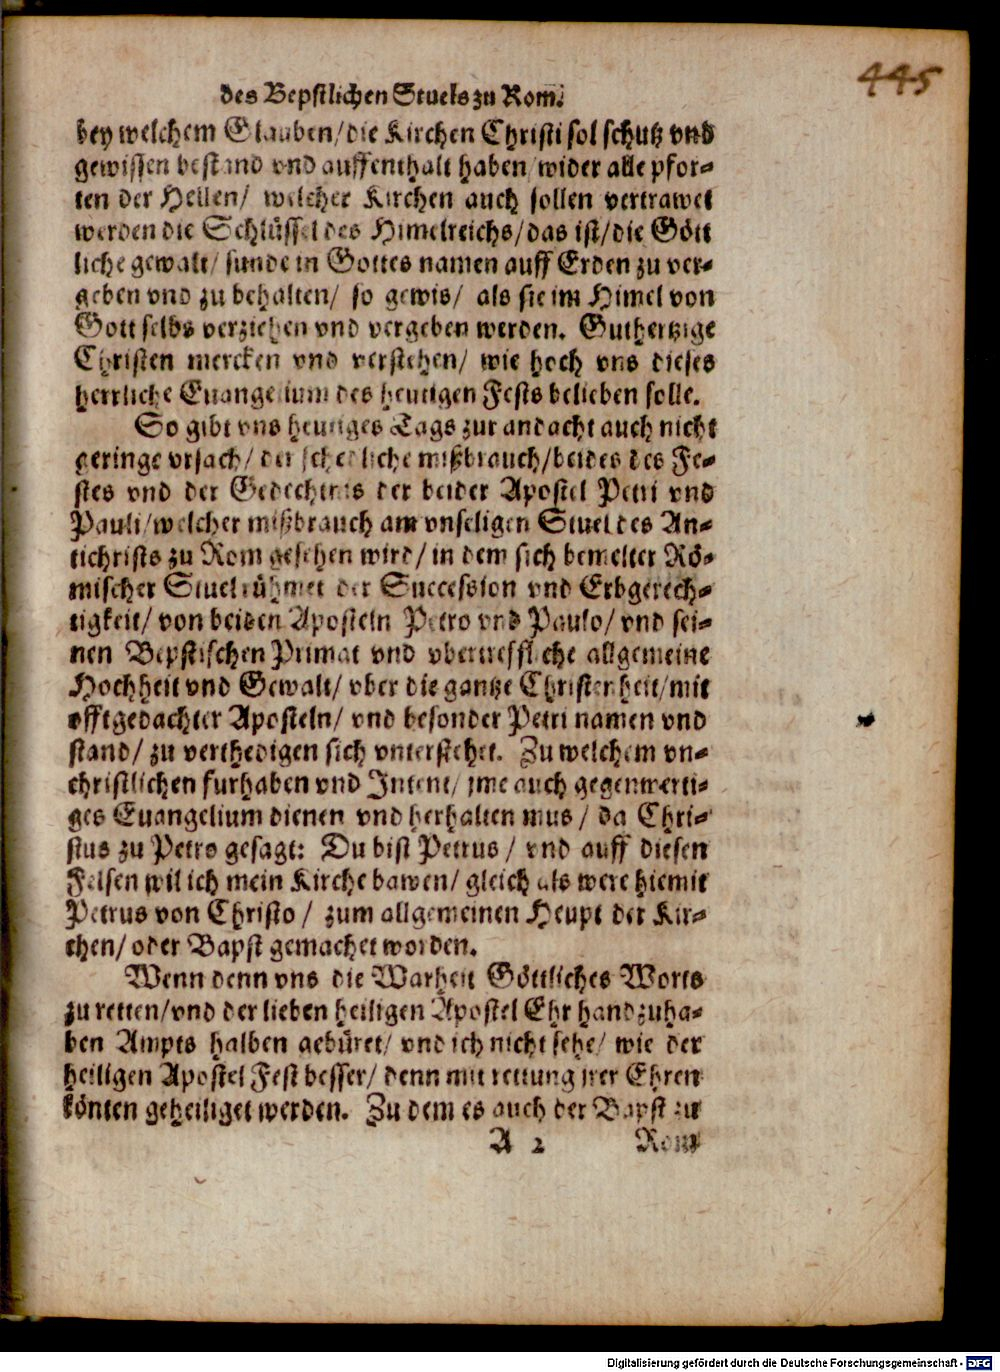 445
des Bepstlichen Stuels zu Rom.
bey welchem Glauben/die Kirchen Christi sol schutz vnd
gewissen bestand vnd auffenthalt haben/wider alle pfor-
ten der Hellen/ welcher Kirchen auch sollen vertrawet
werden die Schlüssel des Himelreichs/das ist/die Gött
liche gewalt/ sunde in Gottes namen auff Erden zu ver-
geben vnd zu behalten/ so gewis/ als sie im Himel von
Gott selbs verziehen vnd vergeben werden. Guthertzige
Christen mercken vnd verstehen/ wie hoch vns dieses
herrliche Euangelium des heutigen Fests belieben solle.
So gibt vns heutiges Tags zur andacht auch nicht
geringe vrsach/ der schedliche mißbrauch/beides des Fe-
stes vnd der Gedechtnis der beider Apostel Petri vnd
Pauli/welcher mißbrauch am vnseligen Stuel des An-
tichrists zu Rom gesehen wird/ in dem sich bemelter Rö-
mischer Stuel rühmet der Succession vnd Erbgerech-
tigkeit/ von beiden Aposteln Petro vnd Paulo/ vnd sei-
nen Bepstischen Primat vnd vbertreffliche allgemeine
Hochheit vnd Gewalt/ vber die gantze Christenheit/mit
offtgedachter Aposteln/ vnd besonder Petri namen vnd
stand/ zu verthedigen sich vnterstehet. Zu welchem vn-
christlichen furhaben vnd Intent/ jme auch gegenwerti-
ges Euangelium dienen vnd herhalten mus/ da Chri-
stus zu Petro gesagt: Du bist Petrus/ vnd auff diesen
Felsen wil ich mein Kirche bawen/ gleich als were hiemit
Petrus von Christo/ zum allgemeinen Heupt der Kir-
chen/ oder Bapst gemachet worden.
Wenn denn vns die Warheit Göttliches Worts
zu retten/vnd der lieben heiligen Apostel Ehr handzuha-
ben Ampts halben gebüret/ vnd ich nicht sehe/ wie der
heiligen Apostel Fest besser/ denn mit rettung jrer Ehren
könten geheiliget werden. Zu dem es auch der Bapst zu
A 2 Rom
Digitalisierung gefördert durch die Deutsche Forschungsgemeinschaft - DFG